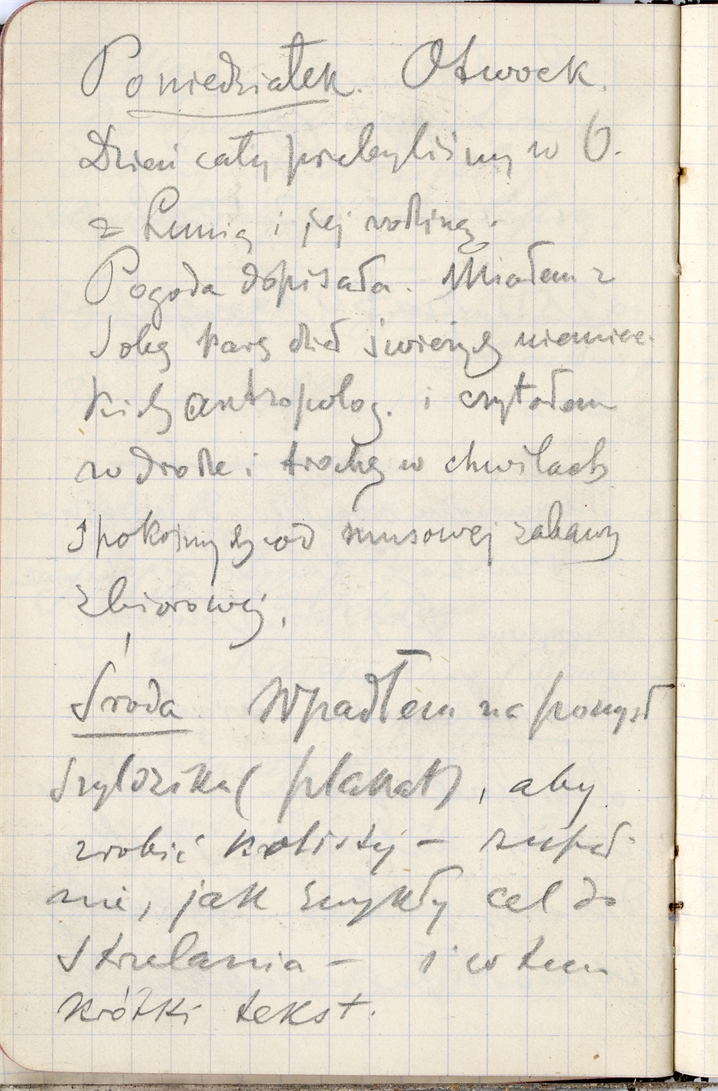 Poniedziałek. Otwock.
Dzień cały przebyliśmy w O.
z Lunią i jej rodziną.
Pogoda dopisała. Miałem z
sobą parę dzieł świeżych niemiec-
kich antropolog. i czytałem
w drodze i trochę w chwilach
spokojnych od musowej zabawy
zbiorowej.
Środa Wpadłem na pomysł
szyldzika (plakat), aby
zrobić kolisty – zupeł-
nie, jak zwykły cel do
strzelania – i w tem
krótki tekst.